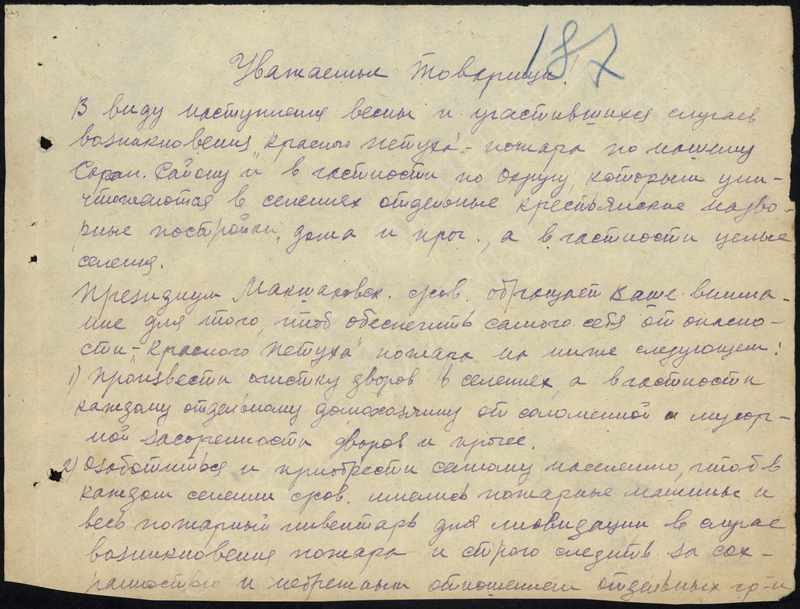 187
Уважаемые товарищи!
В виду наступления весны и участившихся случаев
возникновения "красного петуха" - пожара по нашему
Саран. району и в частности по округу, которым уни-
чтожаются в селениях отдельные крестьянские надво-
рные постройки, дома и проч., а в частности целые
селения.
Президиум сров. обращает ваше внима-
ние для того, чтоб обеспечить самого себя от опасно-
сти, "красного петуха" пожара на ниже следующем:
1) Произвести очистку дворов в селениях, а в частности
каждому отдельному домохозяину от соломенной и мусор-
ной засоренности дворов и прочее.
2) Озаботиться и приобрести самому населению, чтоб в
каждом селении сров. имелись пожарные машины и
весь пожарный инвентарь для ликвидации в случае
возникновения пожара и строго следить за сох-
ранностью и небрежным отношением отдельных гр-н